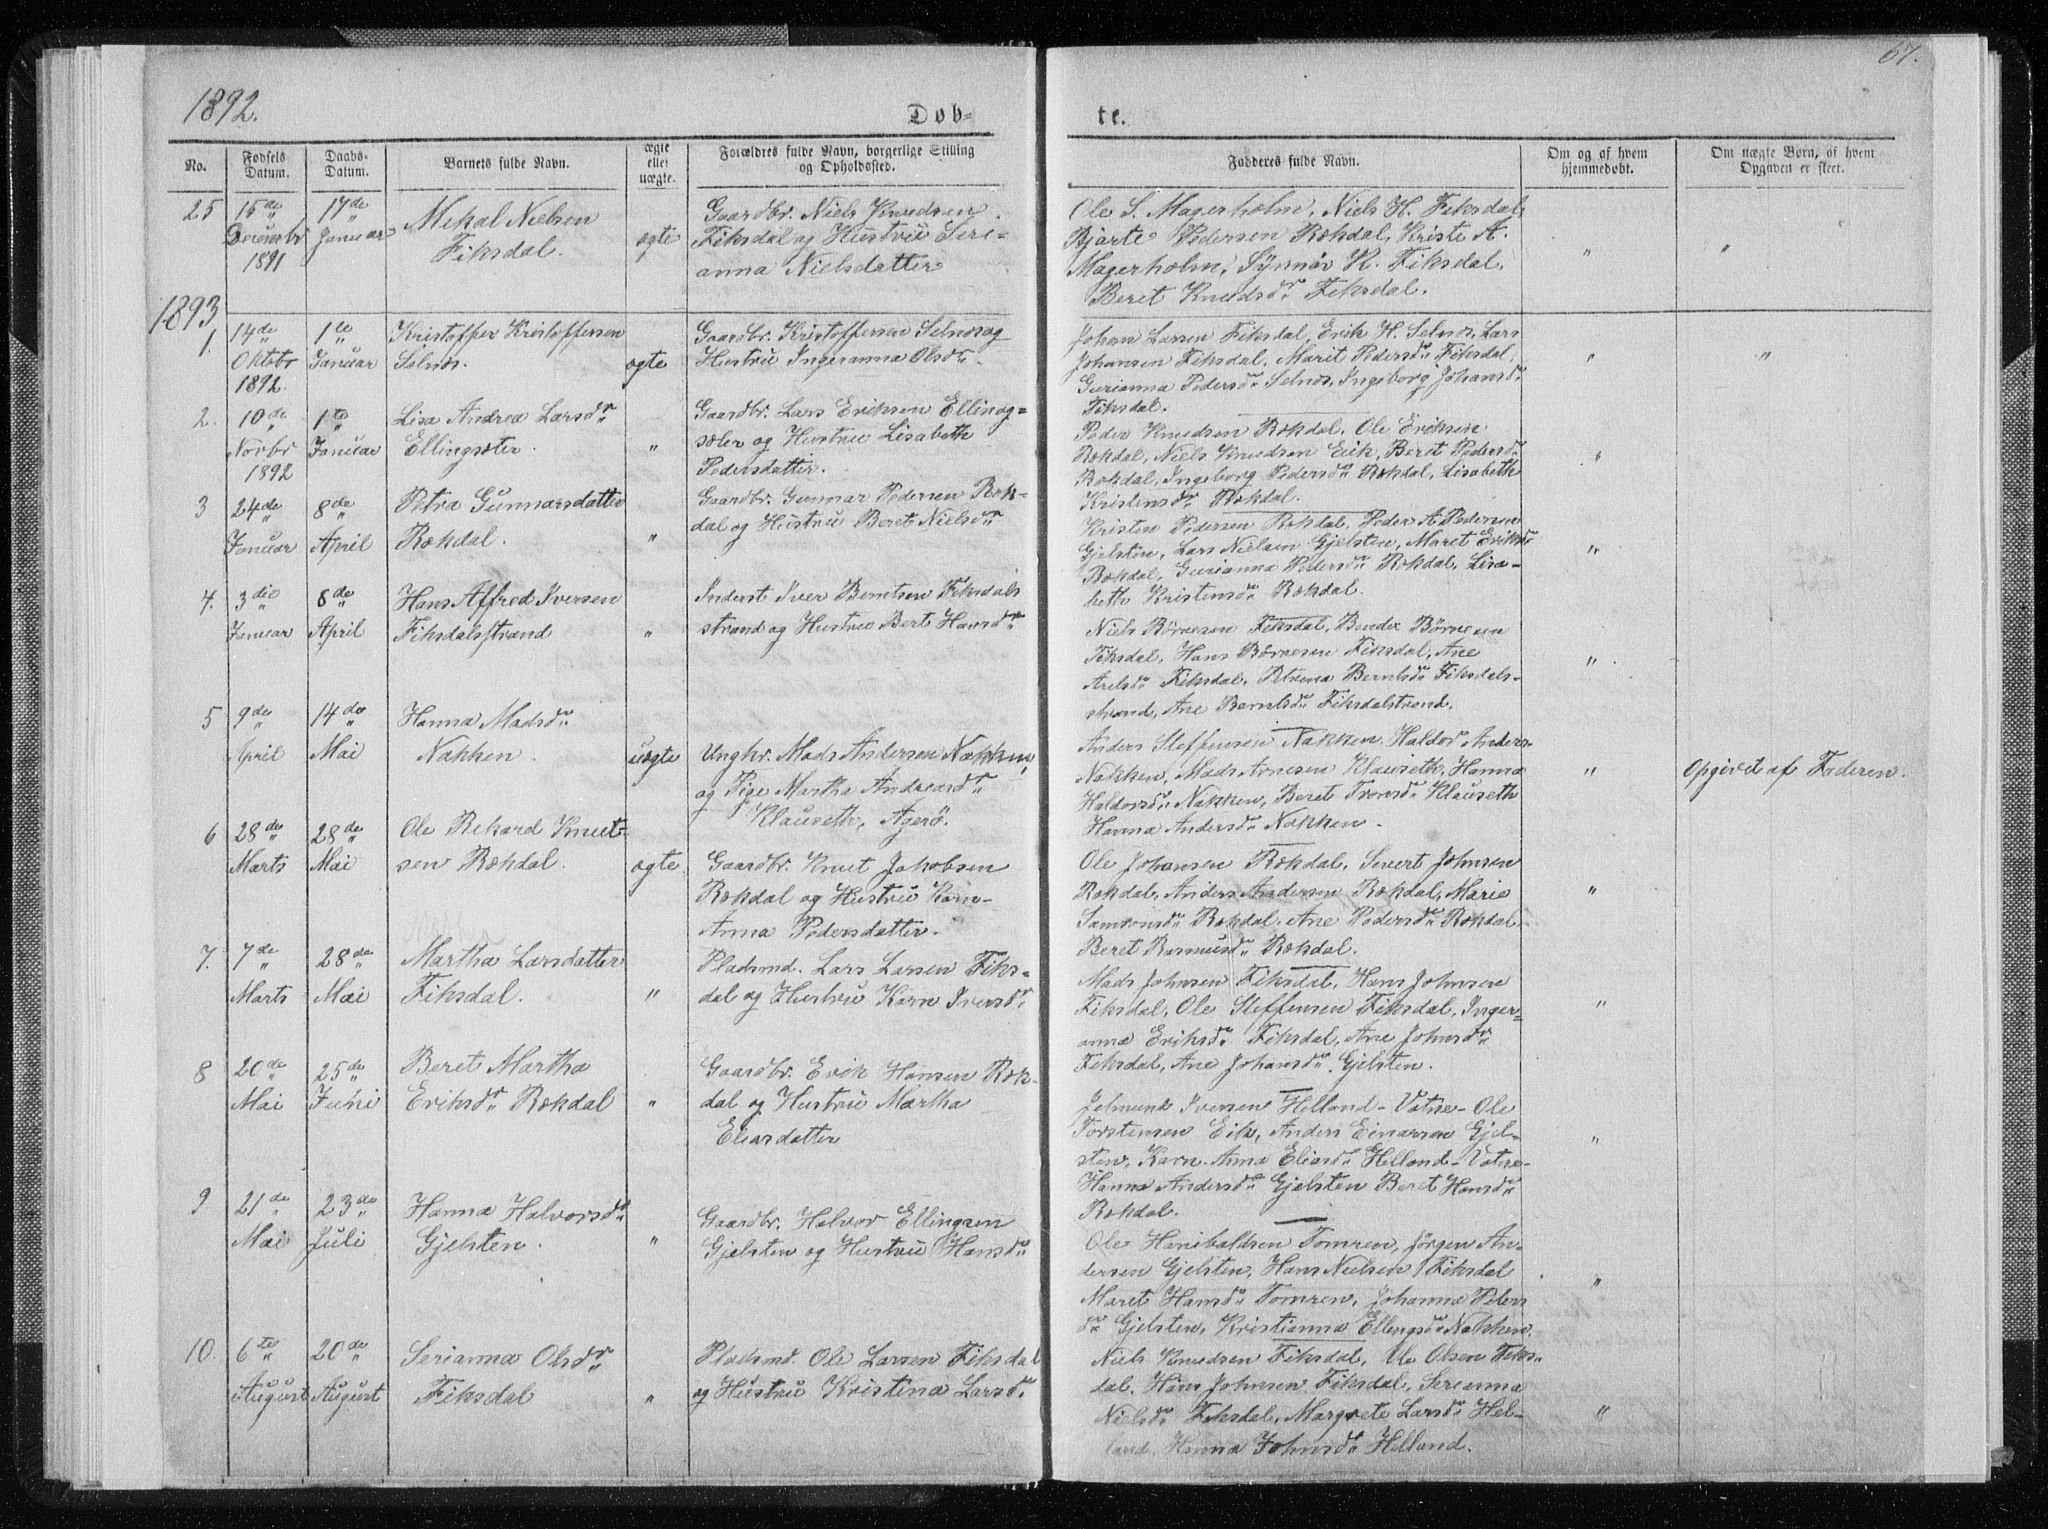 67.
1892.
Døb-
te.
No.
Fødsels Datum.
Daabs-Datum.
Barnets fulde Navn.
ægte eller uægte.
Forældres fulde Navn, borgerlige Stilling og Opholdssted.
Fadderes fulde Navn.
Om og af hvem hjemmedøbt.
Om uægte Børn, af hvem Opgaven er skeet.
25 15de Decembr 1891 17de Januar
Mekal Nielsen
Fiksdal.
ægte
Gaardbr. Niels Knudsen
Fiksdal og Hustru Seri-
anna Nielsdatter
Ole S. Magerholm, Niels H. Fiksdal,
Bjarte Pedersen Rekdal, Kriste A.
Magerholm, Synnøv K. Fiksdal,
Beret Knudsdr Fiksdal.
" "
1893
1. 14de Oktobr 1892. 1te Januar
Kristoffer Kristoffersen
Selnes.
ægte
Gaardbr. Kristoffersen Selnes og
Hustru Ingeranna Olsdr.
Johan Larsen Fiksdal, Erik H. Selnes, Lars
Johansen Fiksdal, Marit Pedersdr Fiksdal,
Gurianna Pedersdr Selnes, Ingeborg Johansdr
Fiksdal.
" "
2. 10de Novbr 1892 1te Januar
Lisa Andrea Larsdr
Ellingsæter.
"
Gaardbr. Lars Eriksen Elling-
sæter og Hustru Lisabeth
Pedersdatter.
Peder Knudsen Rekdal, Ole Eriksen
Rekdal, Niels Knudsen Eik, Beret Pedersdr
Rekdal, Ingeborg Pedersdr Rekdal, Lisabeth
Kristensdr Rekdal.
"
3 24de Januar 8de April
Petra Gunnarsdatter
Rekdal.
"
Gaardbr. Gunnar Pedersen Rek-
dal og Hustru Beret Nielsdr
Kristen Pedersen Rekdal, Peder A. Pedersen
Gjelsten, Lars Nielsen Gjelsten, Maret Eriksdr
Rekdal, Gurianna Pedersdr Rekdal, Lisa-
beth Kristensdr Rekdal.
"
4. 3die Januar 8de April
Hans Alfred Iversen
Fiksdalsstrand
"
Inderst Iver Berntsen Fiksdals
strand og Hustru Bert Hansdr
Niels Børresen Fiksdal, Bendix Børresen
Fiksdal, Hans Børresen Fiksdal, Ane
Fiksdal, Petrina Berntsdr Fiksdals-
strand, Ane Berntsdr Fiksdalstrand.
"
5 9de April 14de Mai
Hanna Madsdr
Nakken.
uægte
Ungkr. Mads Andersen Nakken,
og Pige Martha Andreasdr
Klauseth, Agerø.
Anders Steffensen Nakken, Haldor Anders.
Nakken, Mads Arnesen Klauseth, Hanna
Haldorsdr Nakken, Beret Klauseth
Hanna Andersdr Nakken.
"
Opgivet af Faderen.
6 28de Marts 28de Mai
Ole Rekard Knut-
sen Rekdal.
ægte
Gaardbr. Knut Jakobsen
Rekdal og Hustru Karn-
Anna Pedersdatter.
Ole Johansen Rekdal, Sivert Johnsen
Rekdal, Anders Andersen Rekdal, Marie
Samsonsdr Rekdal, Ane Pedersdr Rekdal,
Beret Rasmusdr Rekdal.
"
7. 7de Marts 28de Mai
Martha Larsdatter
Fiksdal.
"
Pladsmd. Lars Larsen Fiks-
dal og Hustru Karn Iversdr
Mads Johnsen Fiksdal, Hans Johnsen
Fiksdal, Ole Steffensen Fiksdal, Inger-
anna Eriksdr Fiksdal, Ane Johnsdr
Fiksdal, Ane Johansdr Gjelsten.
"
8 20de Mai 25de Juni
Beret Martha
Eriksdr Rekdal
"
Gaardbr. Erik Hansen Rek-
dal og Hustru Martha
Eliasdatter
Jetmund Iversen Helland-Vatne- Ole
Torstensen Eik, Anders Einarsen Gjel-
sten, Karn Anna Eliasdr Helland-Vatne-
Hanna Andersdr Gjelsten Beret Hansdr
Rekdal.
"
9 21de Mai 23de Juli
Hanna Halvorsdr
Gjelsten.
"
Gaardbr. Halvor Ellingsen
Gjelsten og Hustru Hansdr
Ole Hanibaldsen Tomren, Jørgen An-
dersen Gjelsten, Hans Nielsen Fiksdal
Maret Hansdr Tomren, Johanna Peters
dr Gjelsten, Kristianna Ellingsdr Nakken.
"
10. 6te August 20de August
Serianna Olsdr
Fiksdal
"
Pladsmd. Ole Larsen Fiksdal
og Hustru Kristina Larsdr
Niels Knudsen Fiksdal, Ole Olsen Fiks-
dal, Hans Johnsen Fiksdal, Serianna
Nielsdr Fiksdal, Margrete Larsdr Hel-
land, Hanna Johnsdr Helland.
"